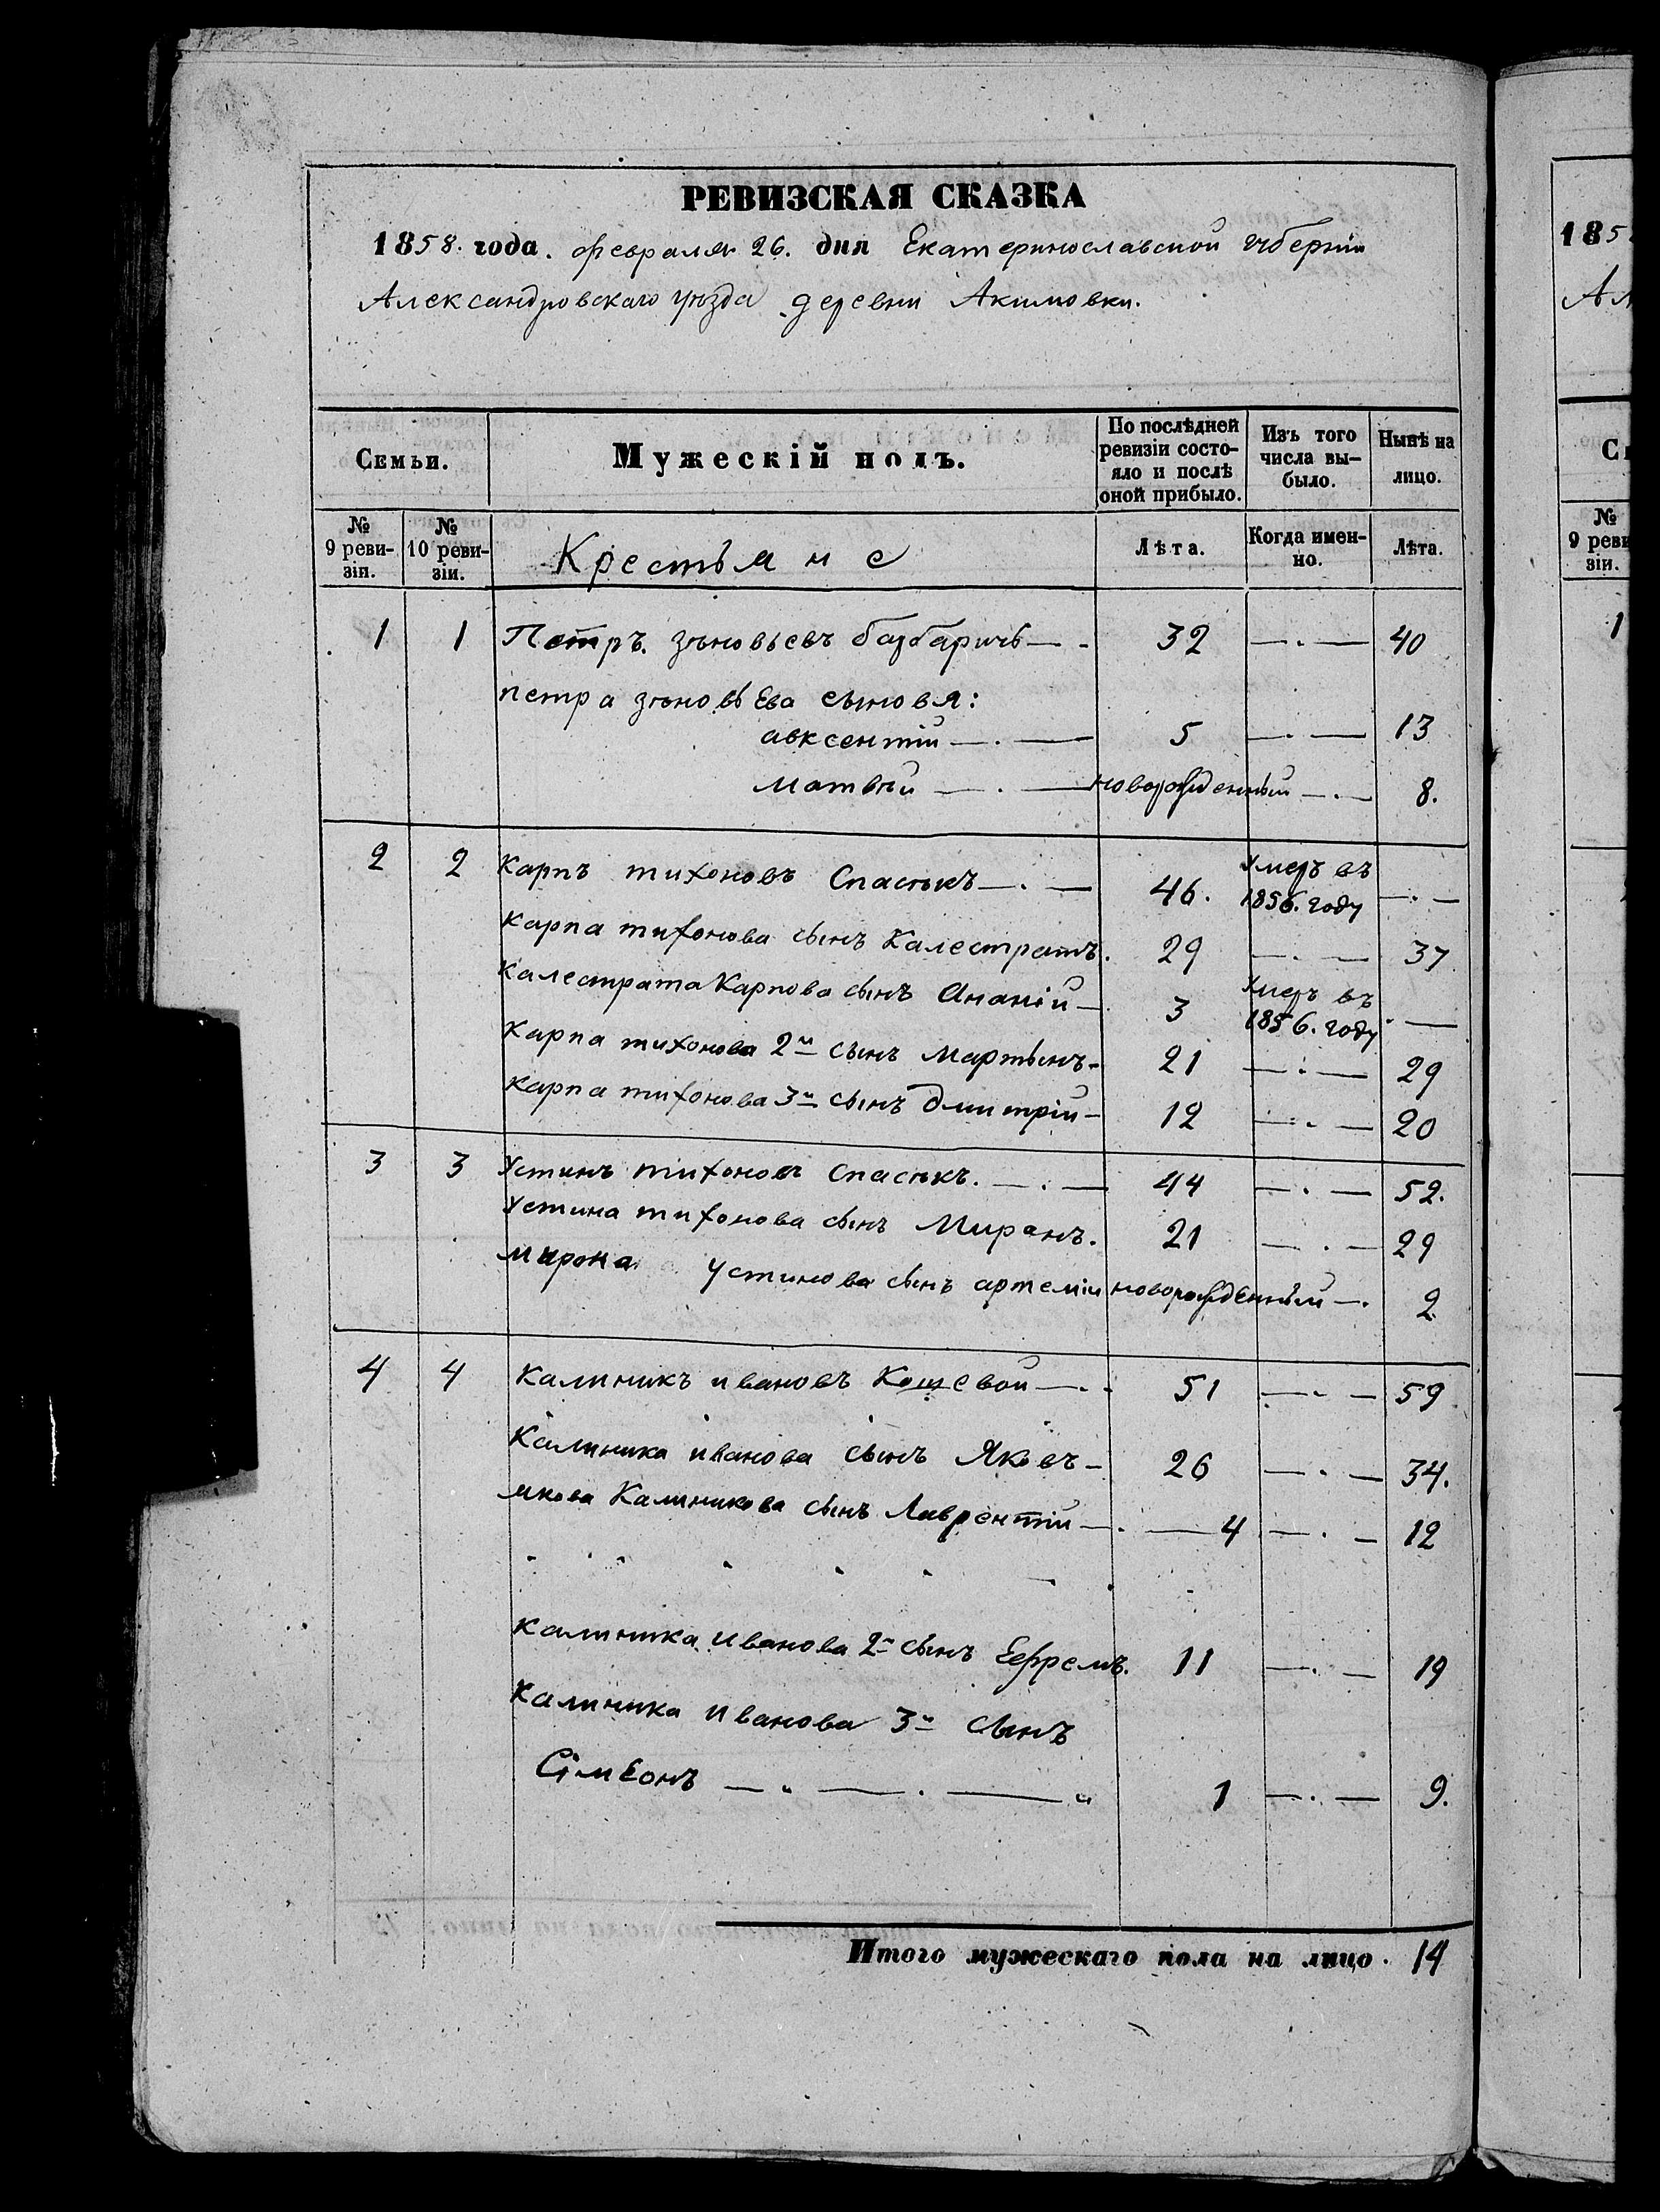 РЕВИЗСКАЯ СКАЗКА
1858. года. февраля 26. дня Екатеринославской губернiи
Александровскаго уѣзда деревни Акимовки.
Семьи.
Мужескiй полъ.
По послѣдней ревизiи состо-
яло и послѣ
оной прибыло.
Изъ того
числа вы-
было.
Нынѣ на
лицо.
№
9 реви-
зiи.
№
10 реви-
зiи.
Крестьяне
Лѣта.
Когда имен-
но.
Лѣта.
1 1 Петръ зѣновьевъ базбаричь — 32 — . — 40
петра зѣновьЕва сыновя:
авксентiй — . — 5 — . — 13
матвѣй — . — новорожденный — . — 8.
2 2 Карпъ тихоновъ Спасѣкъ — . — 46. Умеръ въ 1856. году — . —
Карпа тихонова сынъ Калестратъ. 29 — . — 37
Калестрата Карпова сынъ Ананiй — 3 Умеръ въ 1856. году . —
Карпа тихонова 2й сынъ мартынъ — 21 — . — 29
Карпа тихонова 3й сынъ дмитрiй — 12 — . — 20
3 3 Устинъ тихоновъ Спасѣкъ. — . — 44 — . — 52.
Устина тихонова сынъ Миранъ. 21 — . — 29
мирона устинова сынъ артемiй новорожденный — . 2
4 4 Калиникъ ивановъ Кошевой — . 51 — . — 59
Калиника иванова сынъ Яковъ — 26 — . — 34.
якова Калиникова сынъ Лаврентiй — . — 4 — . — 12
Калиника иванова 2й сынъ Ефремъ. 11 — . — 19
Калиника иванова 3й сынъ
СiмЕонъ — „ — . — „ 1 — . — 9.
Итого мужескаго пола на лицо . 14
185
Ал
С
№
9 реви
зiи.
1